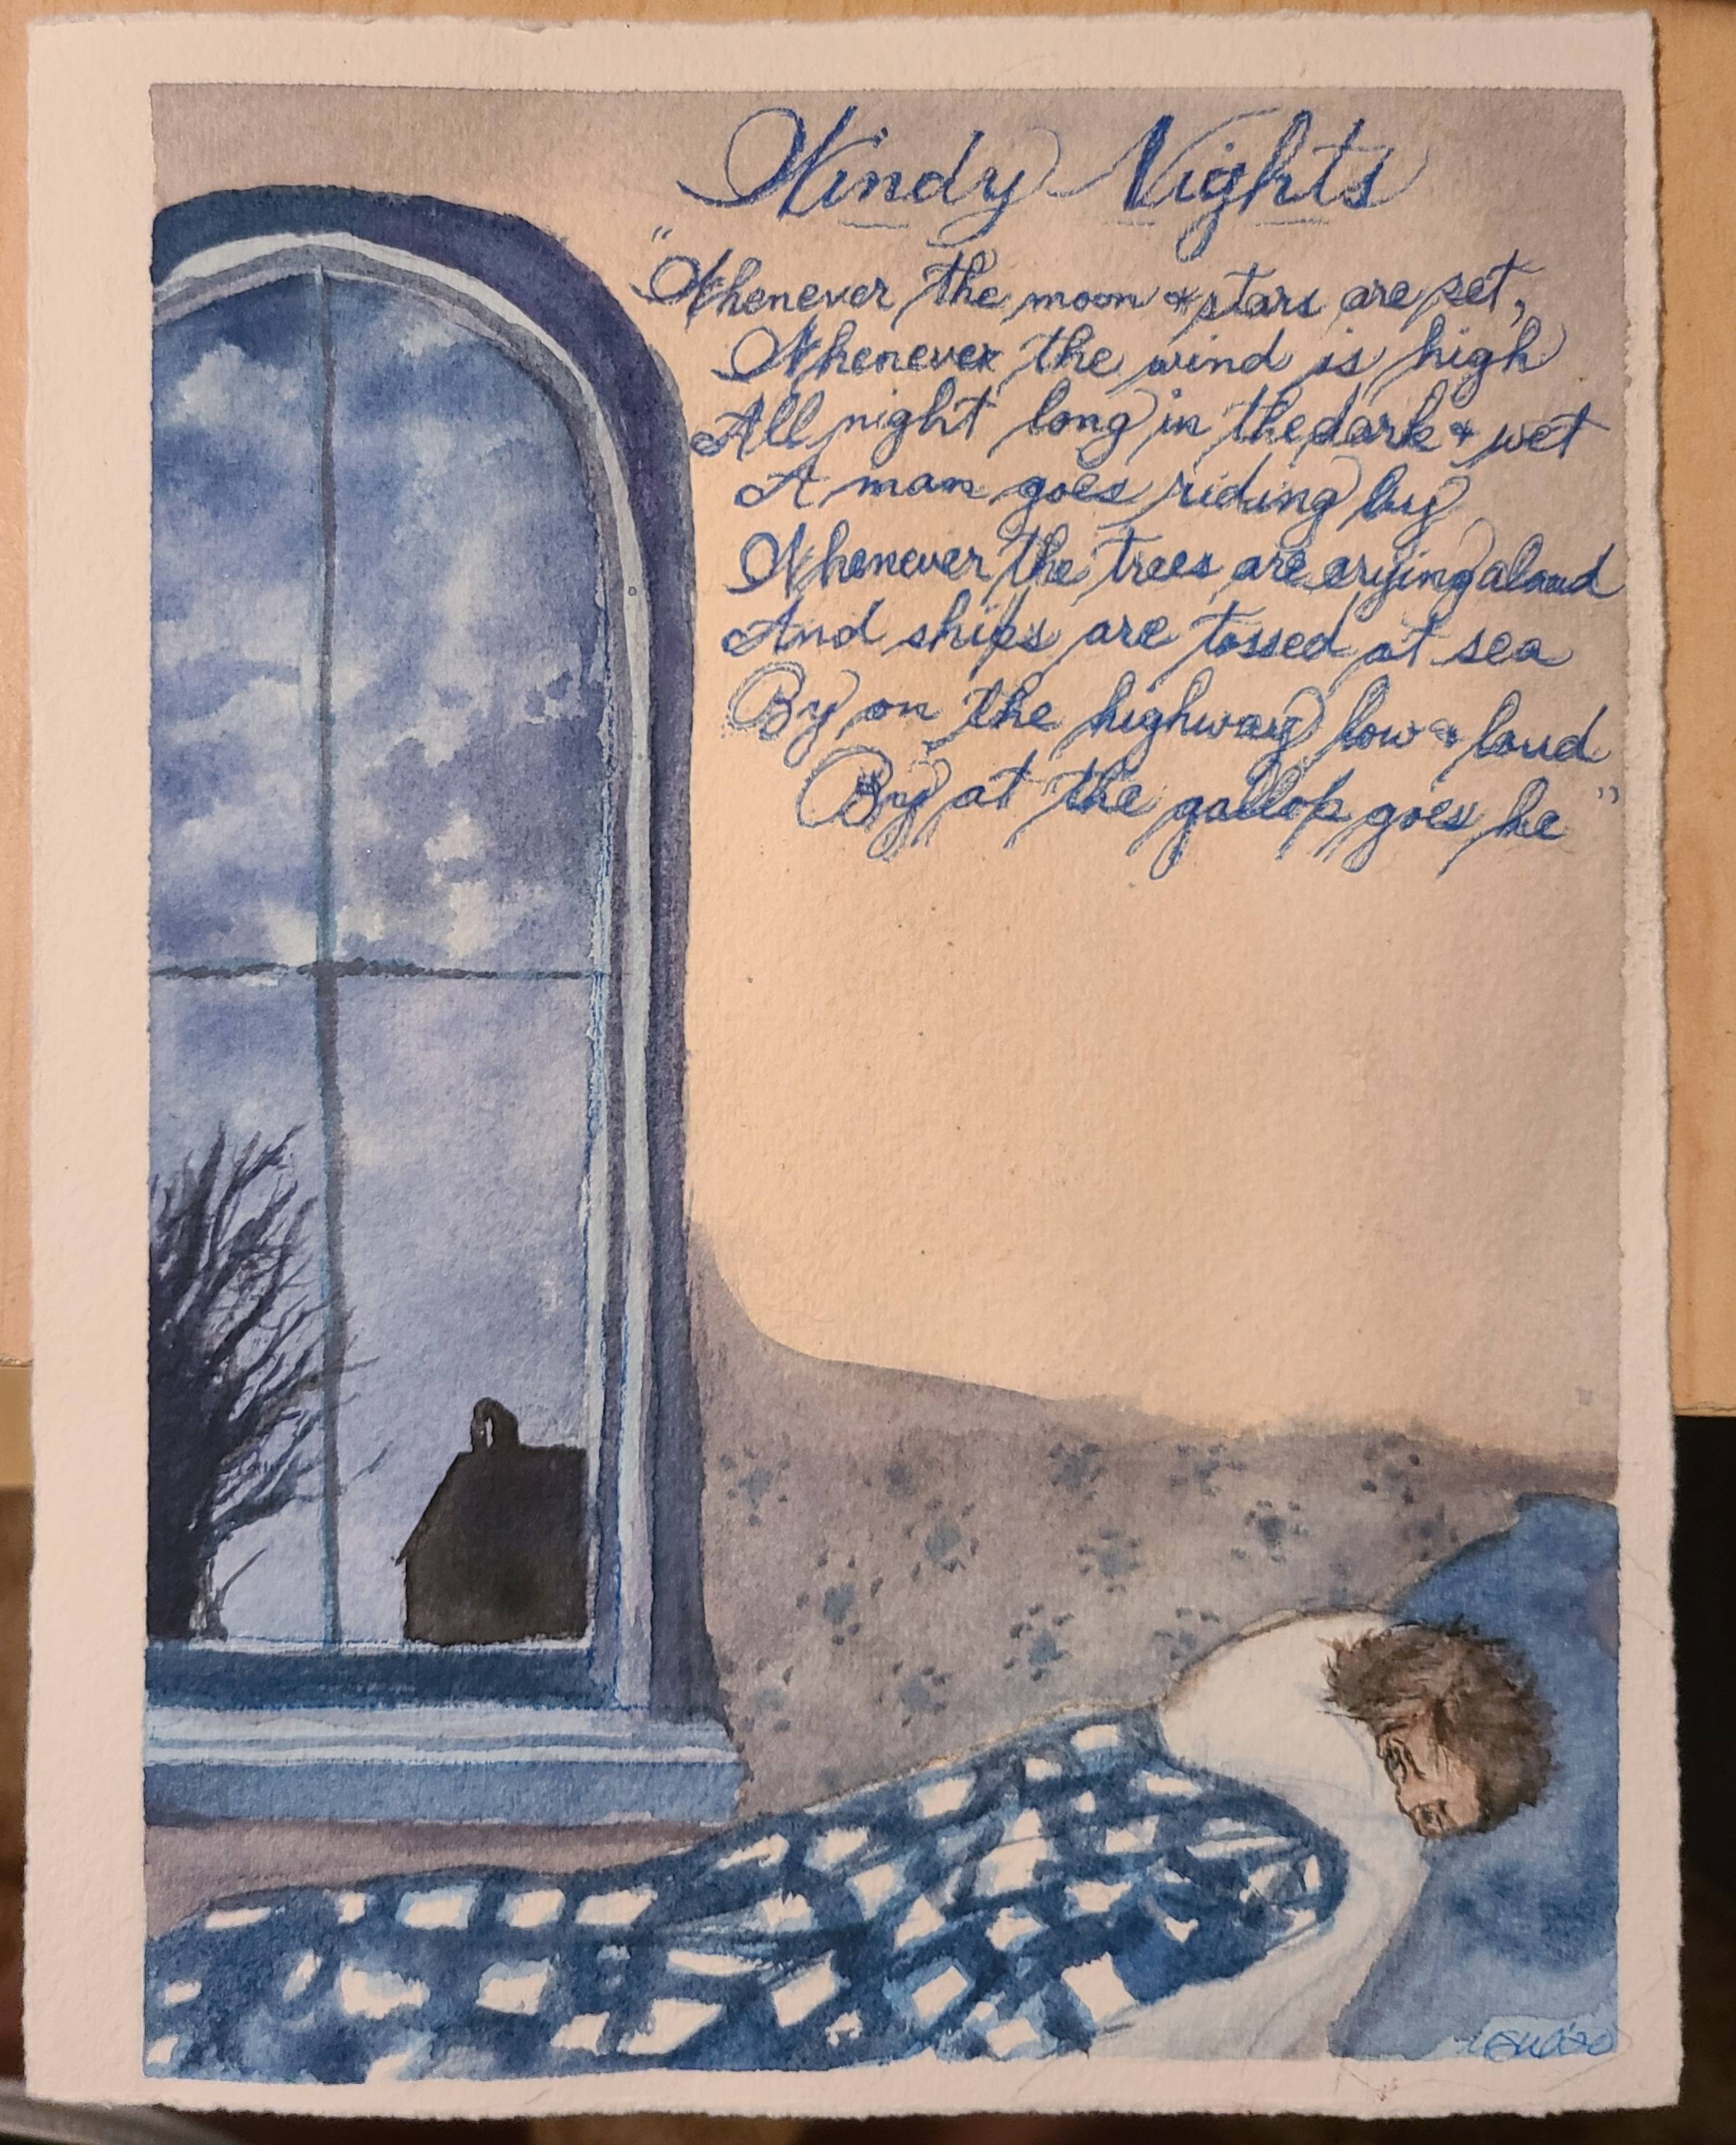 Windy Nights
"Whenever the moon & stars are set,
Whenever the wind is high
All night long in the dark & wet
A man goes riding by
Whenever the trees are crying aloud
And ships are tossed at sea
By on the highway low & loud
By at the gallop goes he"